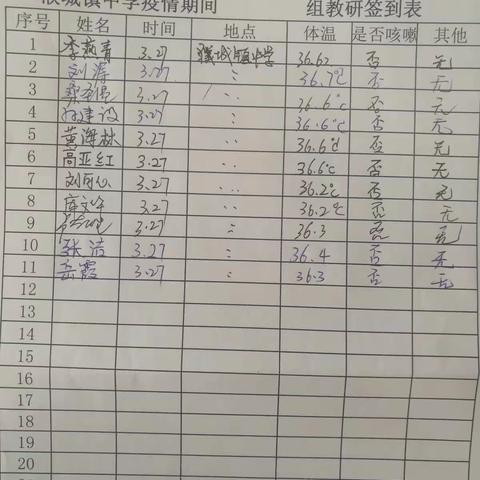 镇中学疫情期间 组教研签到表
序号 姓名 时间 地点 体温 是否咳嗽 其他
1 李燕青 3.27 中学 36.6℃ 否 无
2 刘涛 3.27 〃 36.7℃ 否 无
3 3.27 〃 36.6℃ 否 无
4 建设 3.27 〃 36.6℃ 否 无
5 黄海林 3.27 〃 36.6℃ 否 无
6 高亚红 3.27 〃 36.6℃ 否 无
7 刘 3.27 〃 36.2℃ 否 无
8 3.27 〃 36.2℃ 否 无
9 3.27 〃 36.3 否 无
10 张洁 3.27 〃 36.4 否 无
11 岳霞 3.27 〃 36.3 否 无
12
13
14
15
16
17
18
19
20